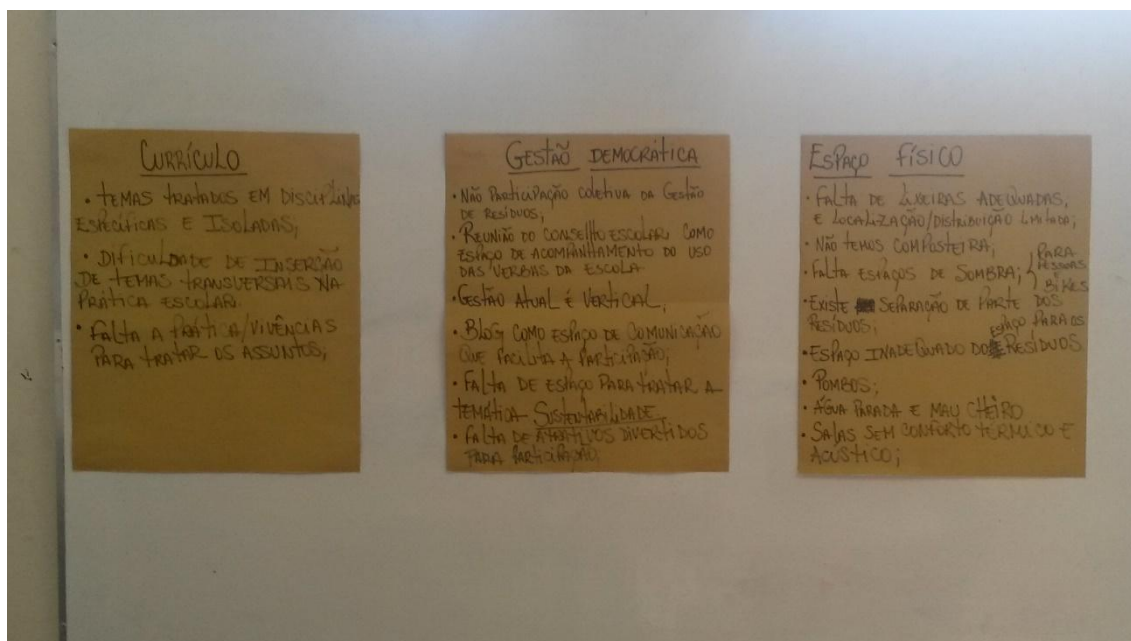 CURRÍCULO
• TEMAS TRATADOS EM DISCIPLINAS
ESPECÍFICAS E ISOLADAS;
• DIFICULDADE DE INSERÇÃO
DE TEMAS TRANSVERSAIS NA
PRÁTICA ESCOLAR.
• FALTA A PRÁTICA/VIVÊNCIAS
PARA TRATAR OS ASSUNTOS;
GESTÃO DEMOCRÁTICA
• NÃO PARTICIPAÇÃO COLETIVA DA GESTÃO
DE RESÍDUOS;
• REUNIÃO DO CONSELHO ESCOLAR COMO
ESPAÇO DE ACOMPANHAMENTO DO USO
DAS VERBAS DA ESCOLA
• GESTÃO ATUAL É VERTICAL;
• BLOG COMO ESPAÇO DE COMUNICAÇÃO
QUE FACILITA A PARTICIPAÇÃO;
• FALTA DE ESPAÇO PARA TRATAR A
TEMÁTICA SUSTENTABILIDADE
• FALTA DE ATRATIVOS DIVERTIDOS
PARA PARTICIPAÇÃO;
ESPAÇO FÍSICO
• FALTA DE LIXEIRAS ADEQUADAS,
E LOCALIZAÇÃO/DISTRIBUIÇÃO LIMITADA;
• NÃO TEMOS COMPOSTEIRA;
• FALTA ESPAÇOS DE SOMBRA; PARA PESSOAS BIKES
• EXISTE SEPARAÇÃO DE PARTE DOS
RESÍDUOS;
• ESPAÇO INADEQUADO ESPAÇO PARA OS RESÍDUOS
• POMBOS;
• ÁGUA PARADA E MAU CHEIRO
• SALAS SEM CONFORTO TÉRMICO E
ACÚSTICO;